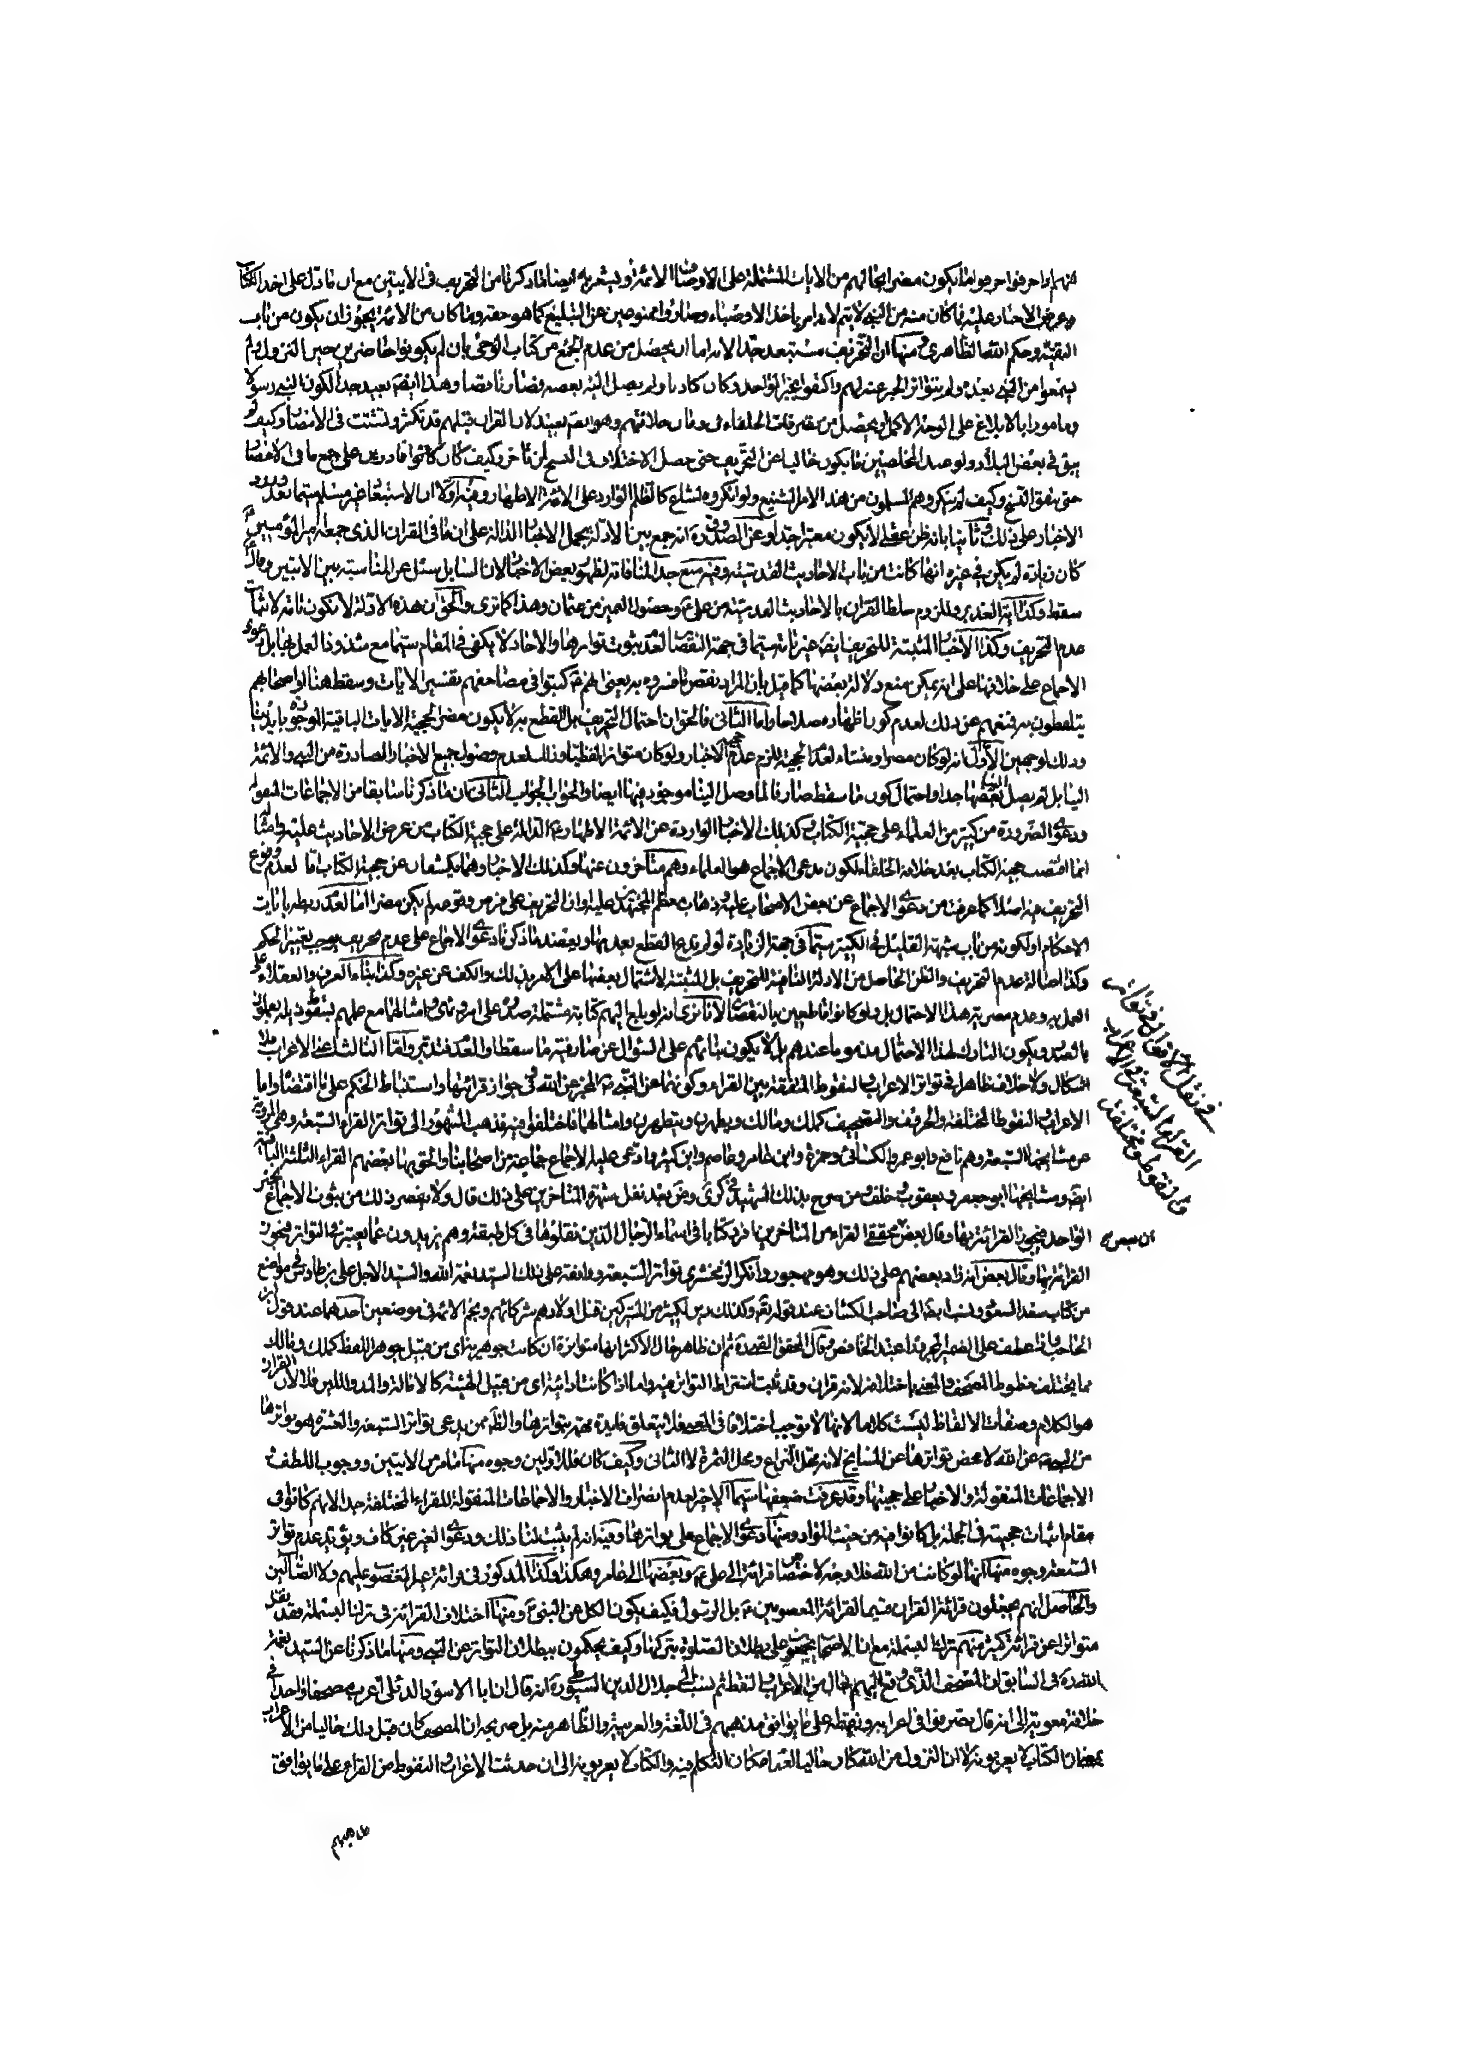 انهم انما حرفوا حرفوا ما يكون مضرا بحالهم من الايات المشتملة على الاوصاف الائمة ويشعر به ايضا ما ذكرنا من التحريف في الايتين مع ان ما دل على اخذ الكتاب
وعرض الاخبار عليه
التقية وحكم الله الظاهري ومنها ان التحريف مستبعد جدا لانه اما ان يحصل من عدم الجمع من كتاب الوحي بان لم يكونوا حاضرين حين النزول ولم
يسمعوا من النبي بعده ولم يتواتر الخبر عندهم واكتفوا بخبر الواحد وكان كاذبا ولم يصل اليه بعضه فصار ناقصا وهذا ايضا بعيد جدا لكون النبي رسولا
ومامورا بالابلاغ على الوجه الاكمل او يحصل من تصرفات الخلفاء في زمان خلافتهم وهو ايضا بعيد لان القران قبلهم قد تكثر وتشتت في الامصار وكيف لم
يبق في بعض البلاد ولو عند المخلصين ما يكون خاليا عن التحريف حتى حصل الاختلاف في النسخ لمن تاخر وكيف كان كانوا قادرين على جمع ما في الامصار
حتى يتفق النسخ وكيف لم ينكروهم المسلمون من هذا الامر الشنيع ولو انكروه لشاع كالظلم الوارد على الائمة الاطهار وفيه اولا ان الاستبعاد غير مسلم سيما بعد ورود
الاخبار على ذلك وثانيا بانه ظن عقلي لا يكون معتبرا جدا وعن الصدوق ره انه جمع بين الادلة بحمل الاخبار الدالة على ان ما في القران الذي جمعه امير المؤمنين
كان زيادة لم يكن في غيره انها كانت من باب الاحاديث القدسية وفيه منع جدا لمنافاته لظهور بعض الاخبار لان السايل سئل عن المناسبة بين الايتين وقال
سقط وكذا اية الغدير وللزوم خلط القران بالاحاديث القدسية من علي ع وحصول التميز من عثمان وهذا كما ترى والحق ان هذه الادلة لا تكون تامة لاثبات
عدم التحريف وكذا الاخبار المثبتة للتحريف ايضا غير تامة سيما في جهة النقصان لعدم ثبوت تواترها والاحاد لا يكفي في المقام سيما مع شذوذ العمل بها بل دعوى
الاجماع على خلافها على انه يمكن منع دلالة بعضها كما قيل بان المراد نقص ما فسروه به يعني انهم ع كتبوا في مصاحفهم تفسير الايات وسقط
واما الثاني فالحق ان احتمال التحريف بل القطع به لا يكون مضرا لحجية الايات الباقية الموجودة بايدينا
وذلك لوجهين الاول انه لو كان مضرا ومنشاء لعدم الحجية للزم عدم حجية الاخبار ولو كان متواتر اللفظ وذلك لعدم وصول جميع الاخبار الصادرة من النبي والائمة
الينا بل لم يصل بعضها جدا واحتمال كون ما سقط صارفا لما وصل الينا موجود فيها ايضا والجواب الجواب الثاني ما ذكرنا سابقا من الاجماعات المنقولة
ودعوى الضرورة من كثير من العلماء على حجية الكتاب وكذلك الاخبار الواردة عن الائمة الاطهار ع الدالة على حجية الكتاب من عرض الاحاديث عليه وامثاله
انما اقتضت حجية الكتاب بعد خلافة الخلفاء لكون مدعي الاجماع هو العلماء وهم متاخرون عنها وكذلك الاخبار وهما يكشفان عن حجية الكتاب اما لعدم وقوع
التحريف فيه اصلا كما عرفت من دعوى الاجماع عن بعض الاصحاب عليه وذهاب معظم المجتهدين عليه او ان التحريف على فرض وقوعه لم يكن مضرا اما لعدم ربطه بايات
الاحكام او لكونه من باب شبهة القليل في الكثير سيما في جهة الزيادة لو لم ندع القطع بعدمها ويعضد ما ذكرنا دعوى الاجماع على عدم تحريف يوجب تغيير الحكم
وكذا اصالة عدم التحريف والظن الحاصل من الادلة النافية للتحريف بل المثبتة لاشتمال بعضها على الامر بذلك والكف عن غيره وكذا بناء العرف والعقلاء على
العمل به وعدم مضرية هذا الاحتمال بل ولو كانوا قاطعين بالنقصان الا ترى انه لو بلغ اليهم كتابة مشتملة صدره على امر ونهي وامثالهما مع علمهم بسقوط ذيله يعملون
بالصدر ويكون التارك لهذا الاحتمال مذموما عندهم بل لا يكون بنائهم على السؤال عن صارفية ما سقط او العدم فتدبر واما الثالث اعني الاعراب فلا
اشكال ولا خلاف ظاهرا في تواتر الاعراب والنقوط المتفقة بين القراء وكونهما عن النبي ص المخبر عن الله وفي جواز قرائتها واستنباط الحكم على ما اقتضاه واما
الاعراب والنقوط المختلفة والحروف والتصحيف كملك ومالك ويطهرن ويتطهرن وامثالهما فاختلفوا فيه فذهب المشهور الى تواتر القراء السبعة وهي المروية
عن مشايخها السبعة وهم نافع وابو عمرو والكسائي وحمزة وابن عامر وعاصم وابن كثير وادعى عليه الاجماع جماعة من اصحابنا والحق بها بعضهم القراء الثلثة الباقية
ايضا ومشايخها ابو جعفر ويعقوب وخلف وممن صرح بذلك الشهيد في كرى وض بعد نقل شهرة المتاخرين على ذلك قال ولا يقصر ذلك من ثبوت الاجماع بخبر
الواحد فيجوز القرائة بها وقال بعض محققي القراء من المتاخرين افرد كتابا في اسماء الرجال الذين نقلوها في كل طبقة وهم يزيدون عما يعتبر في التواتر فيجوز
القرائة بها وقال بعض اخر زاد بعضهم على ذلك وهو مهجور وانكر الزمخشري تواتر السبعة ووافقه على ذلك السيد نعمة الله والسيد الاجل علي بن طاوس في مواضع
من كتاب سعد السعود ونسب ايضا الى صاحب الكشاف عند قوله تعالى وكذلك زين لكثير من المشركين قتل اولادهم شركائهم ونجم الائمة في موضعين احدهما عند قول ابن
الحاجب واذا عطف على الضمير المجرور اعيد الخافض وقال المحقق القمي ره ثم ان ظاهر حال الاكثر انها متواترة ان كانت جوهرية اي من قبيل جوهر اللفظ كملك ومالك
مما يختلف خطوط المصحف والمعنى باختلافه لانه قران وقد ثبت اشتراط التواتر فيه واما اذا كانت ادائية اي من قبيل الهيئة كالامالة والمد واللين فلا لان القران
هو الكلام وصفات الالفاظ ليست كلاما لانها لا توجب اختلافا في المعنى فلا يتعلق فايدة مهمة بتواترها والظ ممن يدعي تواتر السبعة والعشرة هو تواترها
من الجهة عن الله لا محض تواترها عن المشايخ لانه محل النزاع ومحل الثمرة لا الثاني وكيف كان فللاولين وجوه منها ما مر من الايتين ووجوب اللطف
الاجماعات المنقولة والاخبار على حجيتها وقد عرفت ضعفها سيما الاخير لعدم انصراف الاخبار والاجماعات المنقولة للقراء المختلفة جدا لانهم كانوا في
مقام اثبات حجيته في الجملة بل كانوا فيه من حيث المواد ومنها دعوى الاجماع على تواترها وفيه انه لم يثبت لنا ذلك ودعوى الغير غير كاف ويؤيد عدم تواتر
السبعة وجوه منها انها لو كانت من الله فلا وجه لاختصاص قرائة الى علي ع وبعضها الى عامر وهكذا وكذا المذكور في قرائة غير المغضوب عليهم ولا الضالين
والحاصل انهم يجعلون قرائة القران قسيما لقرائة المعصومين ع بل الرسول فكيف يكون الكل عن النبي ع ومنها اختلاف القرائة في ترك البسملة فقد نقل
متواترا عن قرائة كثير منهم ترك البسملة مع ان الاصحاب مجمعون على بطلان الصلوة بتركها وكيف يحكمون ببطلان التواتر عن النبي ومنها ما ذكرنا عن السيد نعمة
الله ره في السابق ان المصحف الذي وقع اليهم خال من الاعراب والنقط ثم نسب الى جلال الدين السيوطي ره انه قال ان ابا الاسود الدئلي اعرب مصحفا واحدا في
خلافة معوية الى انه قال تصرفوا في اعرابه ونقطه على ما يوافق مذهبهم في اللغة والعربية والظاهر منه بل صريحه ان المصحف كان قبل ذلك خاليا من الاعراب
الكتاب لا يعربونه لان النزول من الله كان خاليا لعدم مكان التكلم فيه والكتاب لا يعربونه الى ان حدثت الاعراب والنقوط من القراء على ما يوافق
مذهبهم
في نقل الاقوال في تواتر
القراءات السبعة والاعراب
والنقوط مختلفة